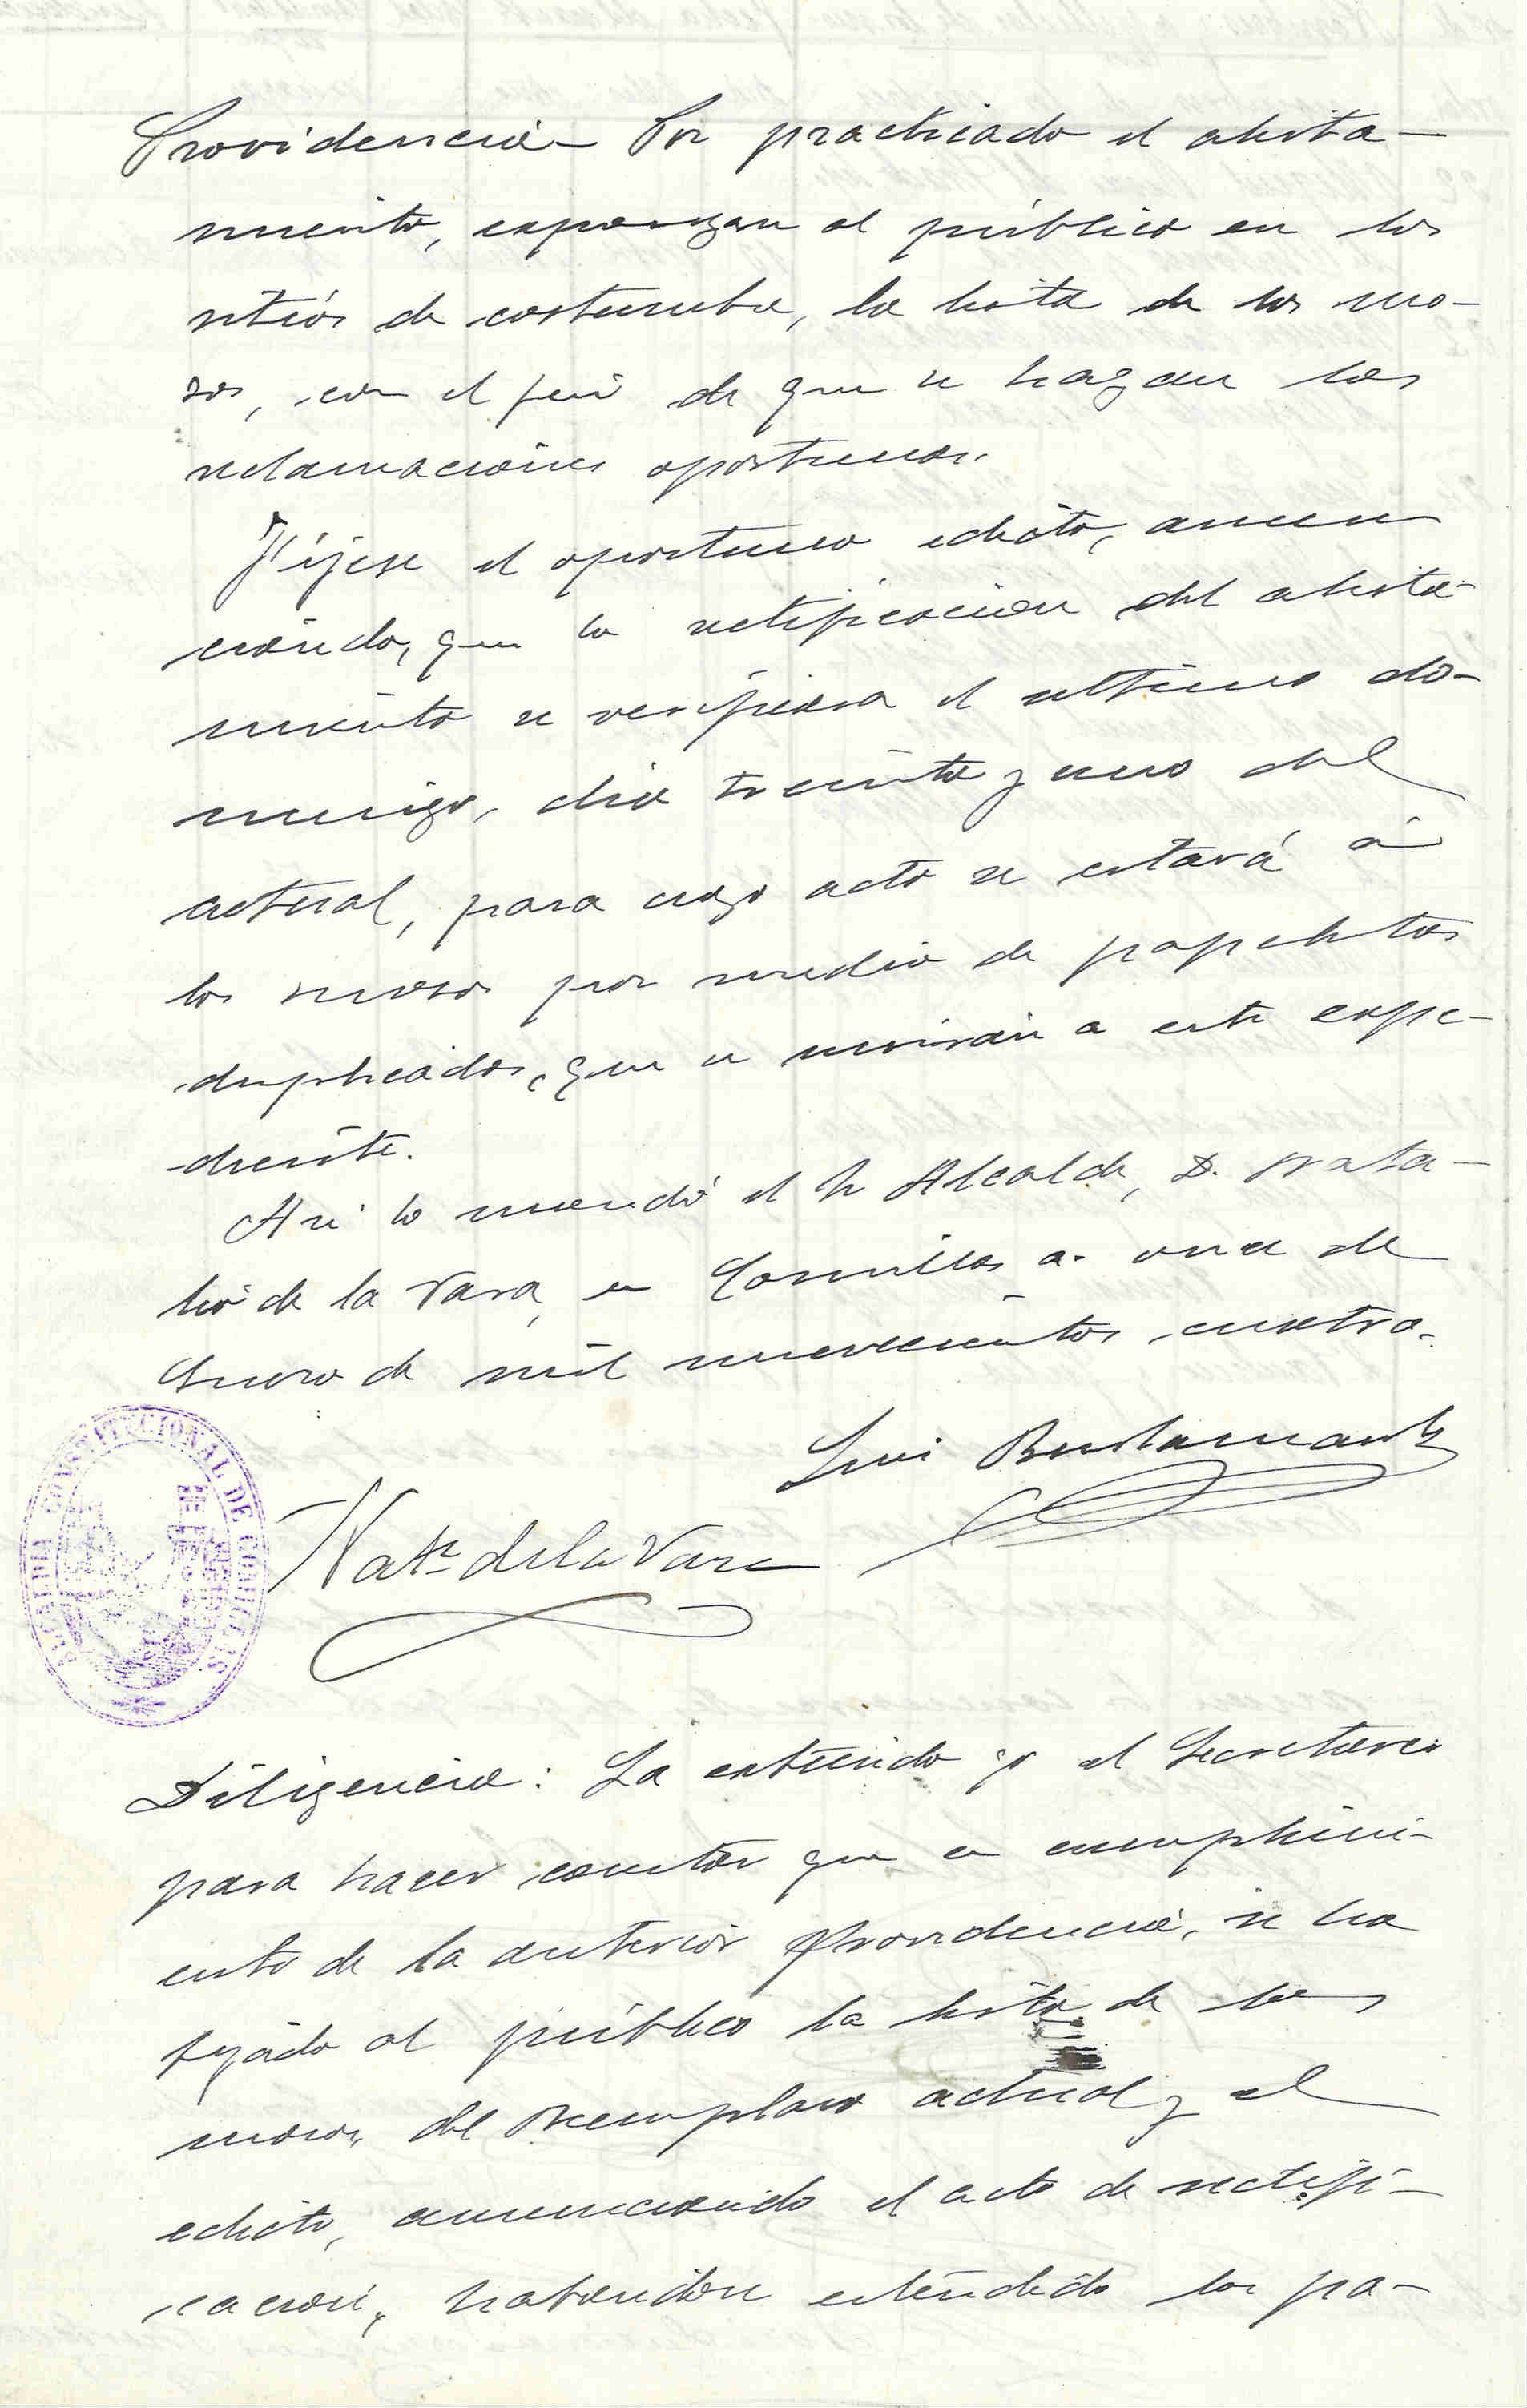 Providencia - Por practicado el alista-
miento, expongan al público en los
sitios de costumbre, la lista de los mo-
zos, con el fin de que se hagan las
reclamaciones oportunas.
Fíjese el oportuno edicto, anun
ciando, que la rectificación del alista-
miento se verificara el ultimo do-
mingo, dia treinta y uno del
actual, para cuyo acto se estará á
los mozos por medio de papeletas
duplicadas, que se unirán a este expe-
diente.
Asi lo mandó el Sr Alcalde, D. Nata-
lio de la Vara, en Comillas a once de
Enero de mil novecientos cuatro.
Luis Bustamante
Nat.º de la Vara
ALCALDIA CONSTITUCIONAL DE COMILLAS
Diligencia: La extiendo yo el Secretario
para hacer constar que en cumplimi-
ento de la anterior Providencia, se ha
fijado al público la lista de los
mozos, del Reemplazo actual y el
edicto, anunciando el acto de rectifi-
cación, habiendose estendido las pa-